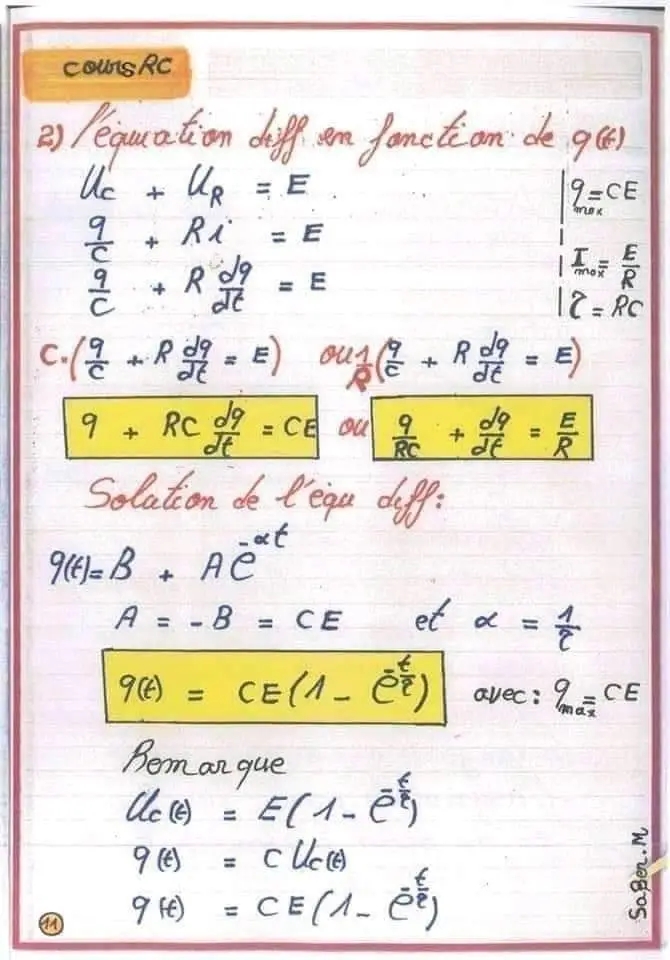 cours RC
2) l'équation diff en fonction de q(t)
Uc + UR = E
q/C + Ri = E
q/C + R dq/dt = E
qmax = CE
Imax = E/R
τ = RC
C.(q/C + R dq/dt = E) ou 1/R (q/C + R dq/dt = E)
q + RC dq/dt = CE ou q/RC + dq/dt = E/R
Solution de l'équ diff:
q(t) = B + A e^-αt
A = -B = CE et α = 1/τ
q(t) = CE(1 - e^-t/τ) avec: qmax = CE
Remarque
Uc(t) = E(1 - e^-t/τ)
q(t) = C Uc(t)
q(t) = CE(1 - e^-t/τ)
11
SaBer.M